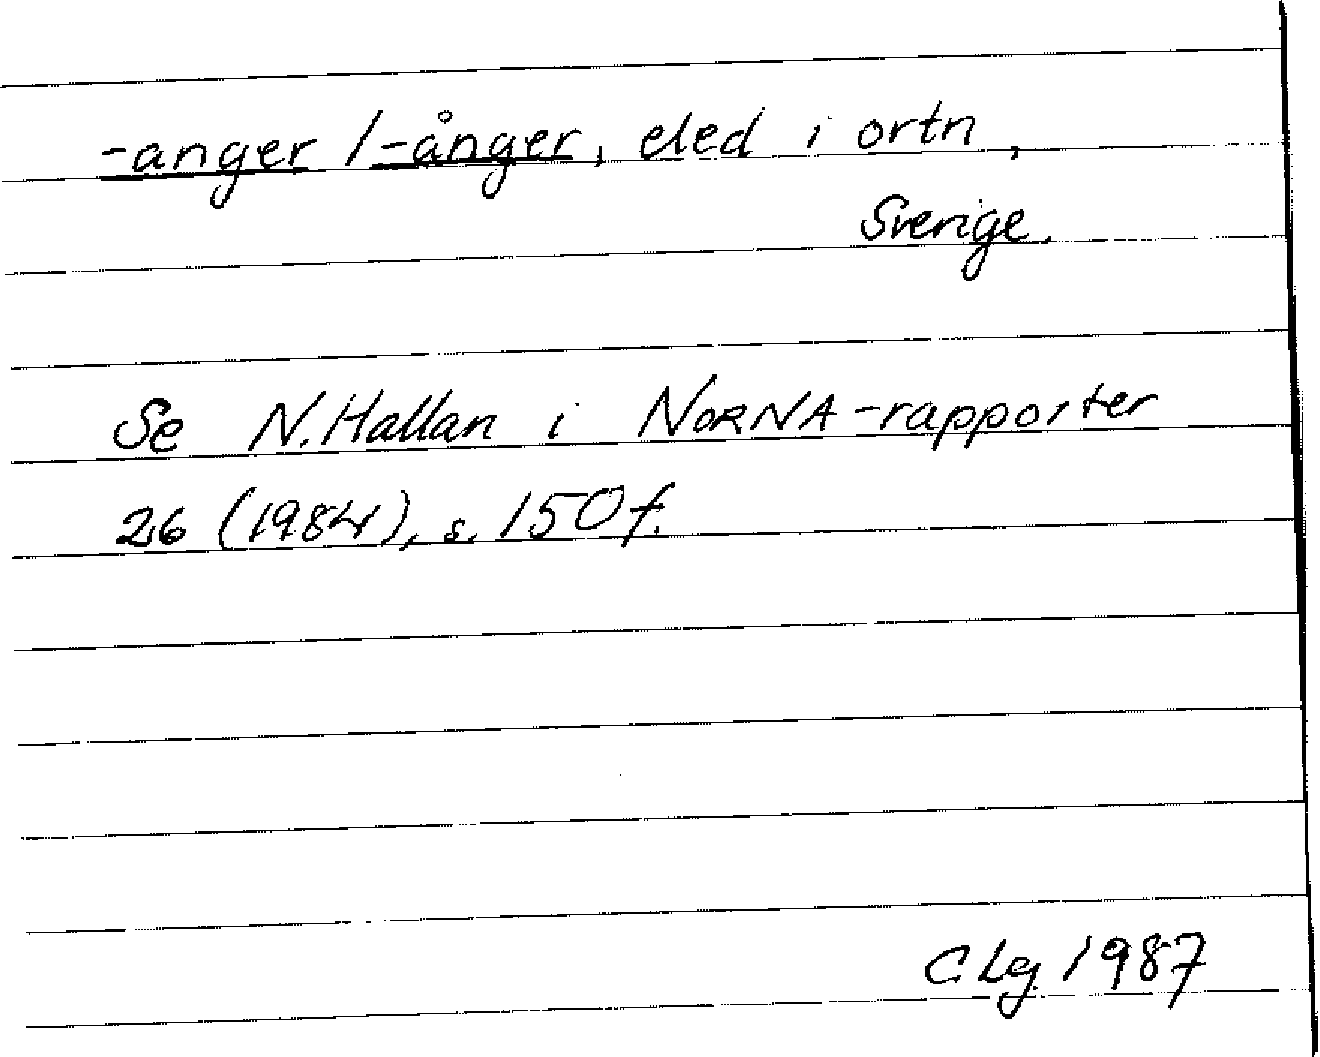 -anger / -ånger, eled i ortn,
Sverige.
Se N. Hallan i NORNA-rapporter
26 (1984), s. 150 f.
C Lg 1987